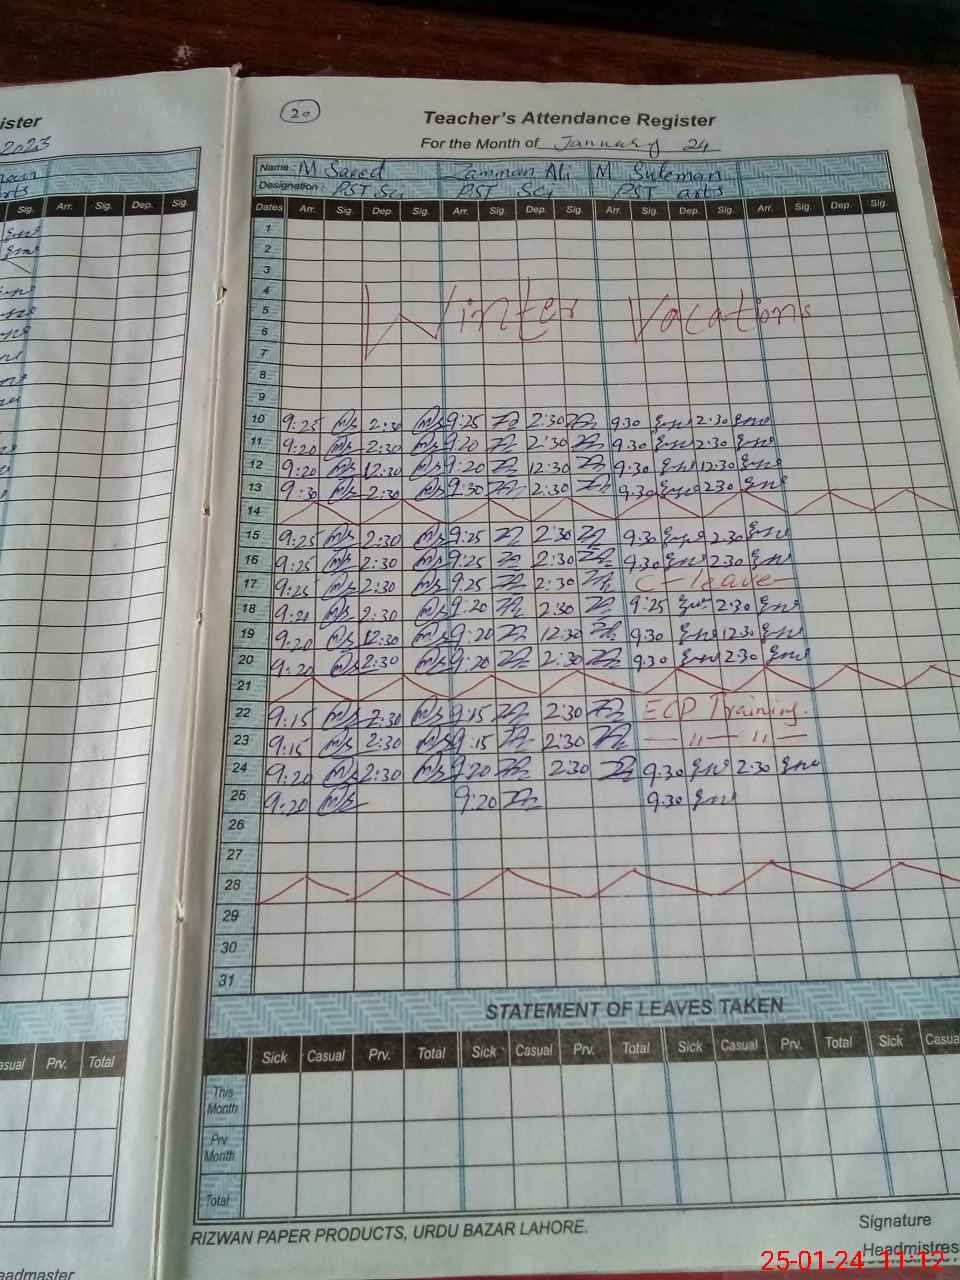 ister
2023
arts
Sig. Arr. Sig. Dep. Sig.
asual Prv. Total
eadmaster
20
Teacher's Attendance Register
For the Month of January 24
Name : M Saeed Zamman Ali M Suleman
Designation : PST Sci PST Sci PST arts
Dates Arr. Sig. Dep. Sig. Arr. Sig. Dep. Sig. Arr. Sig. Dep. Sig. Arr. Sig. Dep. Sig.
1
2
3
4
5 Winter Vacations
6
7
8
9
10 9:25 2:30 9:25 2:30 9.30 2.30
11 9:20 2:30 9:20 2:30 9.30 2.30
12 9:20 12:30 9:20 12:30 9.30 12.30
13 9:30 2:30 9:30 2:30 9.30 2.30
14
15 9:25 2:30 9:25 2:30 9.30 2.30
16 9:25 2:30 9:25 2:30 9.30 2.30
17 9:25 2:30 9:25 2:30 C-leave
18 9:20 2:30 9:20 2:30 9.25 2.30
19 9:20 12:30 9:20 12:30 9.30 12.30
20 9:20 2:30 9:20 2:30 9.30 2.30
21
22 9:15 2:30 9:15 2:30 ECP Training.
23 9:15 2:30 9:15 2:30 — " — " —
24 9:20 2:30 9:20 2:30 9.30 2.30
25 9:20 9:20 9.30
26
27
28
29
30
31
STATEMENT OF LEAVES TAKEN
Sick Casual Prv. Total Sick Casual Prv. Total Sick Casual Prv. Total Sick Casua
This
Month
Prv.
Month
Total
RIZWAN PAPER PRODUCTS, URDU BAZAR LAHORE.
Signature
Headmistres
25-01-24 11:12